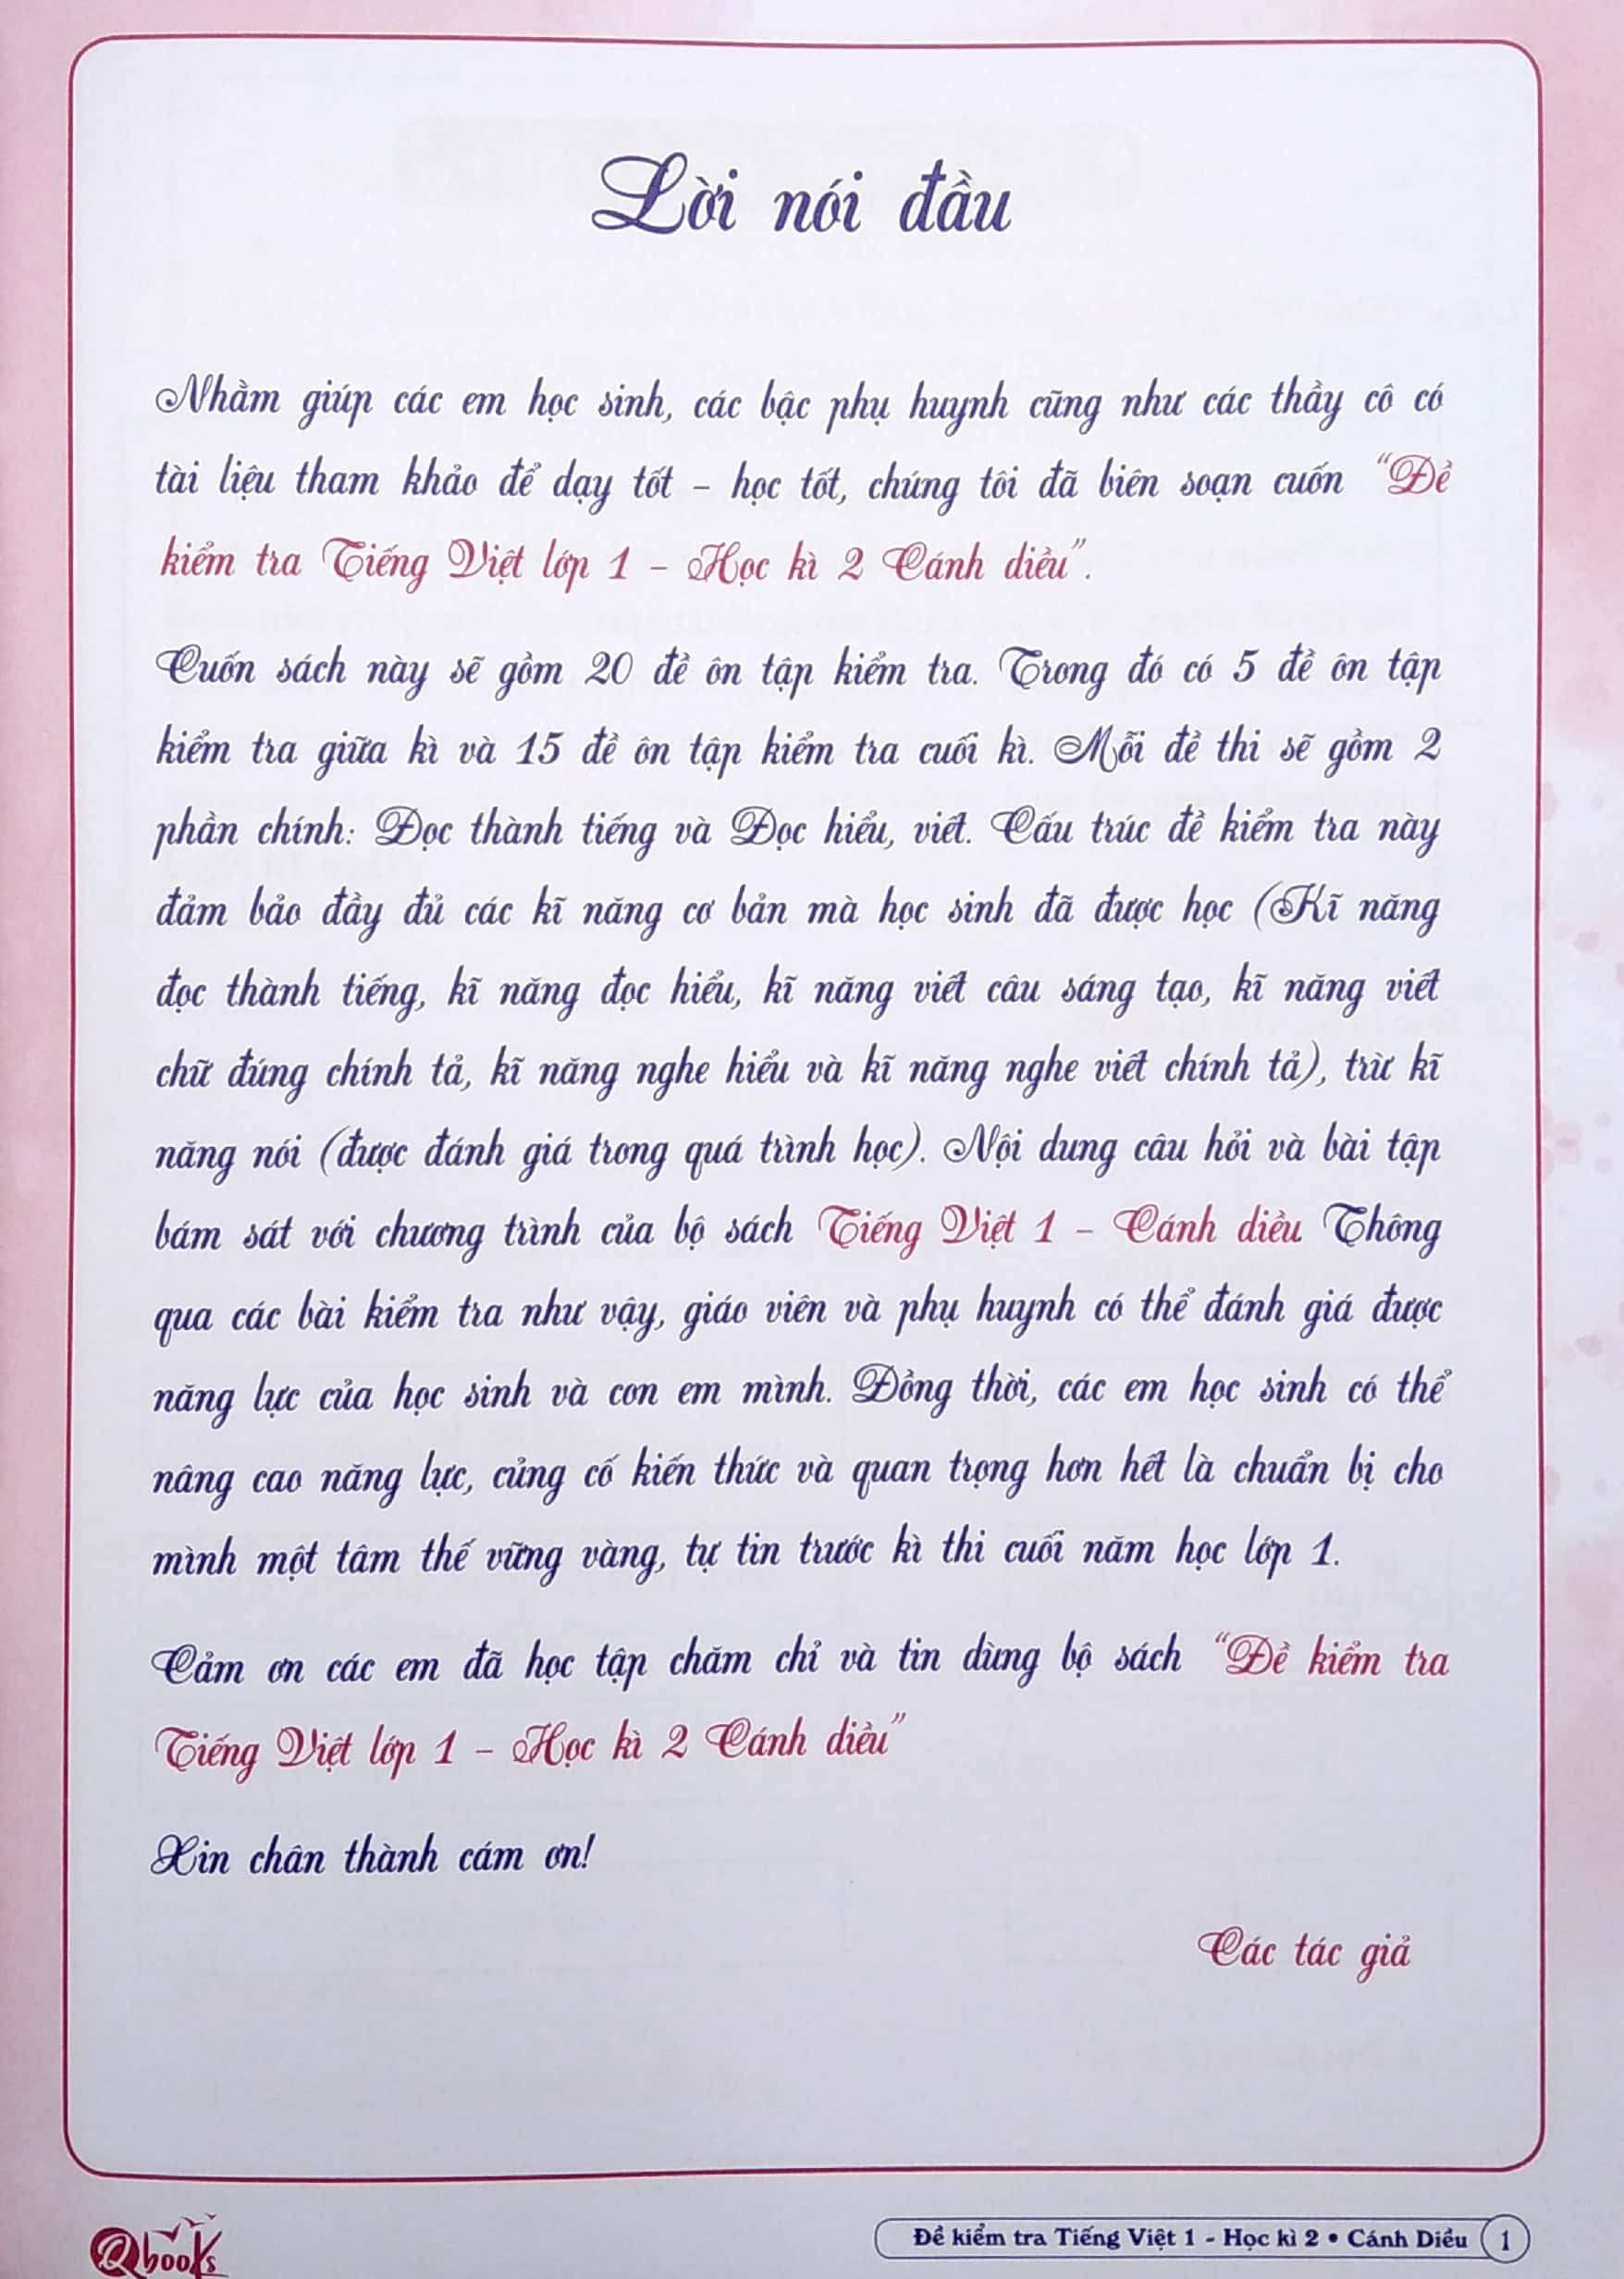 Lời nói đầu
Nhằm giúp các em học sinh, các bậc phụ huynh cũng như các thầy cô có
tài liệu tham khảo để dạy tốt – học tốt, chúng tôi đã biên soạn cuốn “Đề
kiểm tra Tiếng Việt lớp 1 – Học kì 2 Cánh diều”.
Cuốn sách này sẽ gồm 20 đề ôn tập kiểm tra. Trong đó có 5 đề ôn tập
kiểm tra giữa kì và 15 đề ôn tập kiểm tra cuối kì. Mỗi đề thi sẽ gồm 2
phần chính: Đọc thành tiếng và Đọc hiểu, viết. Cấu trúc đề kiểm tra này
đảm bảo đầy đủ các kĩ năng cơ bản mà học sinh đã được học (Kĩ năng
đọc thành tiếng, kĩ năng đọc hiểu, kĩ năng viết câu sáng tạo, kĩ năng viết
chữ đúng chính tả, kĩ năng nghe hiểu và kĩ năng nghe viết chính tả), trừ kĩ
năng nói (được đánh giá trong quá trình học). Nội dung câu hỏi và bài tập
bám sát với chương trình của bộ sách Tiếng Việt 1 – Cánh diều Thông
qua các bài kiểm tra như vậy, giáo viên và phụ huynh có thể đánh giá được
năng lực của học sinh và con em mình. Đồng thời, các em học sinh có thể
nâng cao năng lực, củng cố kiến thức và quan trọng hơn hết là chuẩn bị cho
mình một tâm thế vững vàng, tự tin trước kì thi cuối năm học lớp 1.
Cảm ơn các em đã học tập chăm chỉ và tin dùng bộ sách “Đề kiểm tra
Tiếng Việt lớp 1 – Học kì 2 Cánh diều”
Xin chân thành cám ơn!
Các tác giả
Qbooks
Đề kiểm tra Tiếng Việt 1 - Học kì 2 • Cánh Diều 1